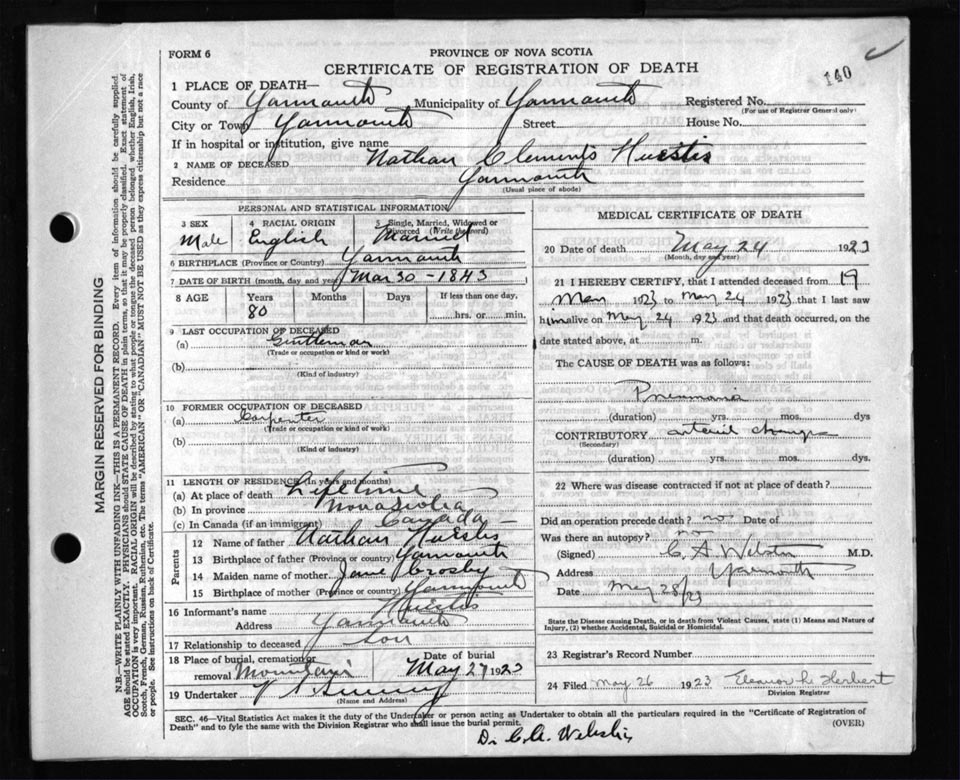 140
FORM 6
PROVINCE OF NOVA SCOTIA
CERTIFICATE OF REGISTRATION OF DEATH
1 PLACE OF DEATH—
County of Yarmouth Municipality of Yarmouth Registered No.
(For use of Registrar General only)
City or Town Yarmouth Street House No.
If in hospital or institution, give name
2 NAME OF DECEASED Nathan Clements Huestis
Residence Yarmouth
(Usual place of abode)
PERSONAL AND STATISTICAL INFORMATION
3 SEX 4 RACIAL ORIGIN 5 Single, Married, Widowed or Divorced (Write the word)
Male English Married
6 BIRTHPLACE (Province or Country) Yarmouth
7 DATE OF BIRTH (month, day and year) Mar 30 - 1843
8 AGE Years Months Days If less than one day,
80 hrs. or min.
9 LAST OCCUPATION OF DECEASED
(a) Gentleman
(Trade or occupation or kind or work)
(b)
(Kind of industry)
10 FORMER OCCUPATION OF DECEASED
(a) Carpenter
(Trade or occupation or kind of work)
(b)
(Kind of industry)
11 LENGTH OF RESIDENCE (In years and months)
(a) At place of death Lifetime
(b) In province Nova Scotia
(c) In Canada (if an immigrant) Canada -
Parents
12 Name of father Nathan Huestis
13 Birthplace of father (Province or country) Yarmouth
14 Maiden name of mother Jane Crosby
15 Birthplace of mother (Province or country) Yarmouth
16 Informant's name Huestis
Address Yarmouth
17 Relationship to deceased Son
18 Place of burial, cremation or removal Mountain Date of burial May 27 1923
19 Undertaker
(Name and Address)
MEDICAL CERTIFICATE OF DEATH
20 Date of death May 24 1923
(Month, day and year)
21 I HEREBY CERTIFY, that I attended deceased from 19
May 1923 to May 24 1923 that I last saw
him alive on May 24 1923 and that death occurred, on the
date stated above, at m.
The CAUSE OF DEATH was as follows:
Pneumonia
(duration) yrs. mos. dys
CONTRIBUTORY arterial changes
(Secondary)
(duration) yrs. mos. dys.
22 Where was disease contracted if not at place of death?
Did an operation precede death? no Date of
Was there an autopsy? no
(Signed) C. A. Webster M.D.
Address Yarmouth
Date May 28/23
State the Disease causing Death, or in death from Violent Causes, state (1) Means and Nature of
Injury, (2) whether Accidental, Suicidal or Homicidal.
23 Registrar's Record Number
24 Filed May 26 1923 Eleanor L. Herbert
Division Registrar
SEC. 46—Vital Statistics Act makes it the duty of the Undertaker or person acting as Undertaker to obtain all the particulars required in the "Certificate of Registration of
Death" and to fyle the same with the Division Registrar who shall issue the burial permit.
(OVER)
Dr C. A. Webster
MARGIN RESERVED FOR BINDING
N.B—WRITE PLAINLY WITH UNFADING INK—THIS IS A PERMANENT RECORD. Every item of information should be carefully supplied.
AGE should be stated EXACTLY. PHYSICIANS should STATE CAUSE OF DEATH in plain terms, so that it may be properly classified. Exact statement of
OCCUPATION is very important. RACIAL ORIGIN will be described by stating to what people or tongue the deceased person belonged whether English, Irish,
Scotch, French, German, Russian, Ruthenian, etc. The terms "AMERICAN" OR "CANADIAN" MUST NOT BE USED as they express citizenship but not a race
or people. See instructions on back of Certificate.